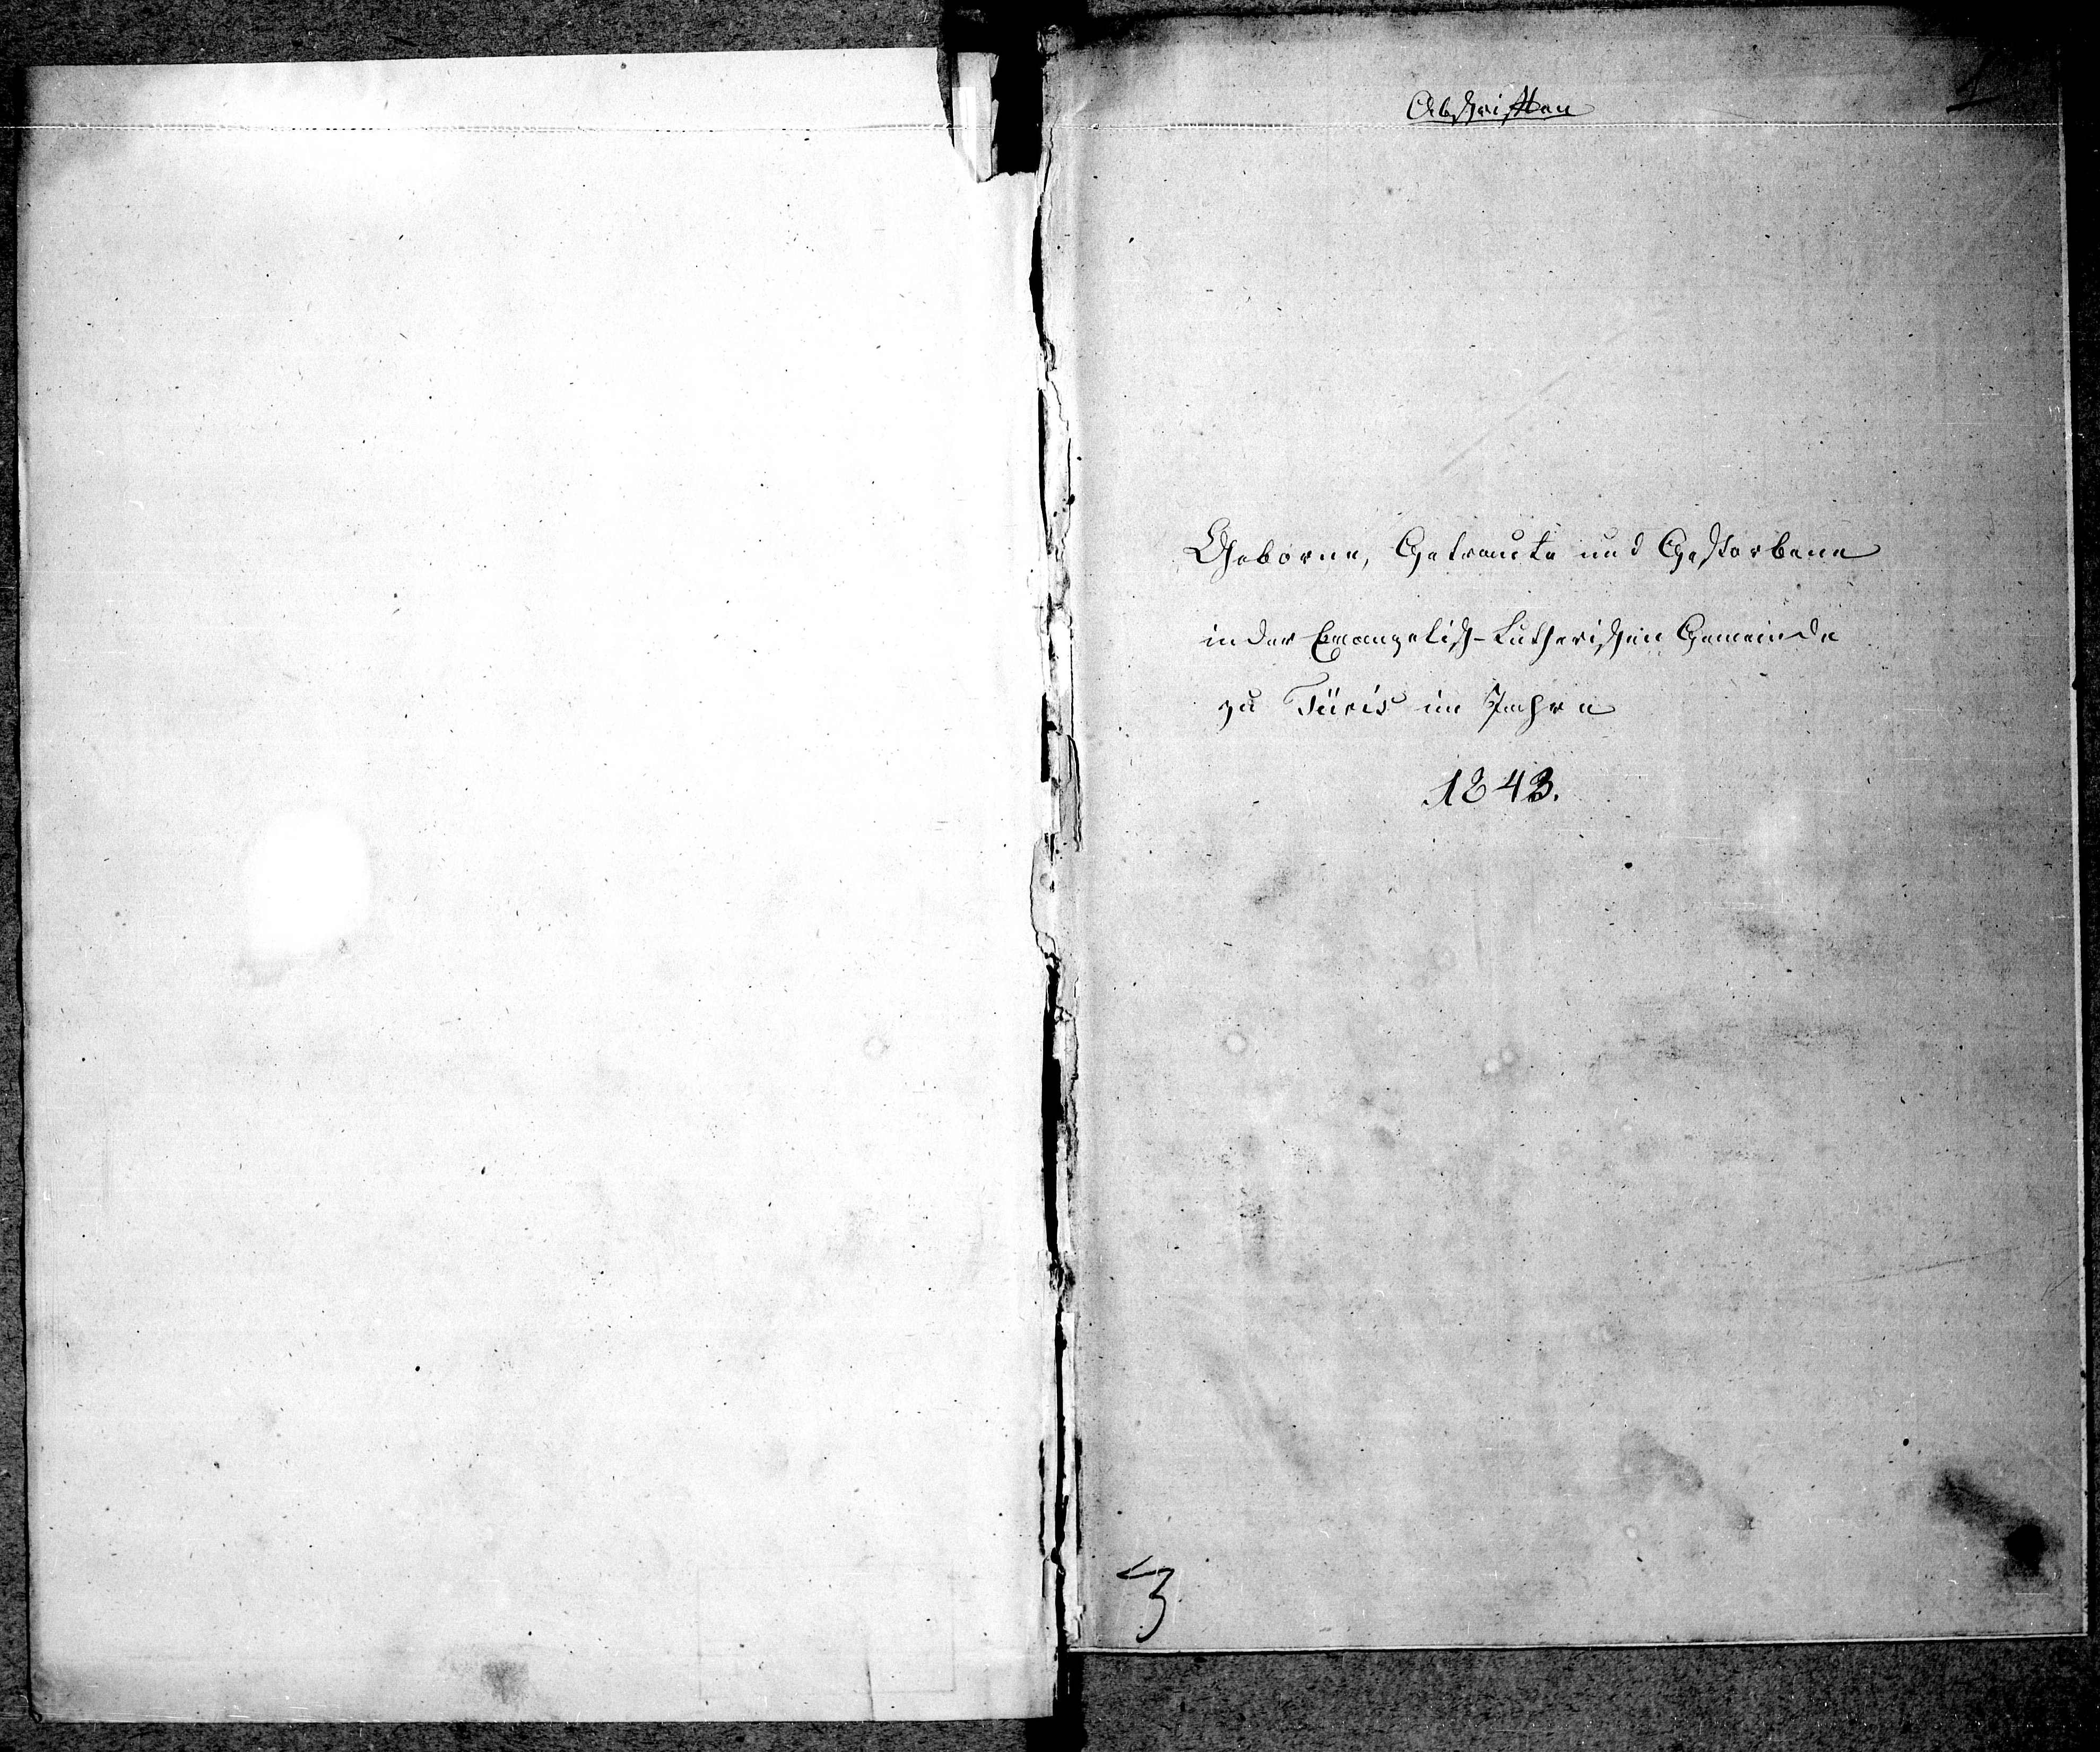 Abschriften
Geborne, Getraute und Gestorbene
in der Evangelisch-Lutherischen Gemeinde
zu Türis im Jahre
1843.
3